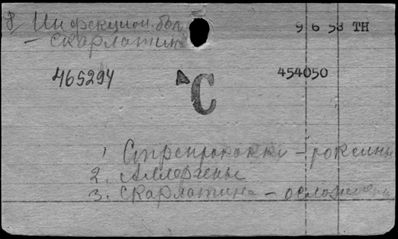 8 Инфекцион. бол. 9 6 58 ТН
- скарлатина
465294 C 454050
1 Стрептококки - токсины
2. Аллергены
3. Скарлатина - осложнения